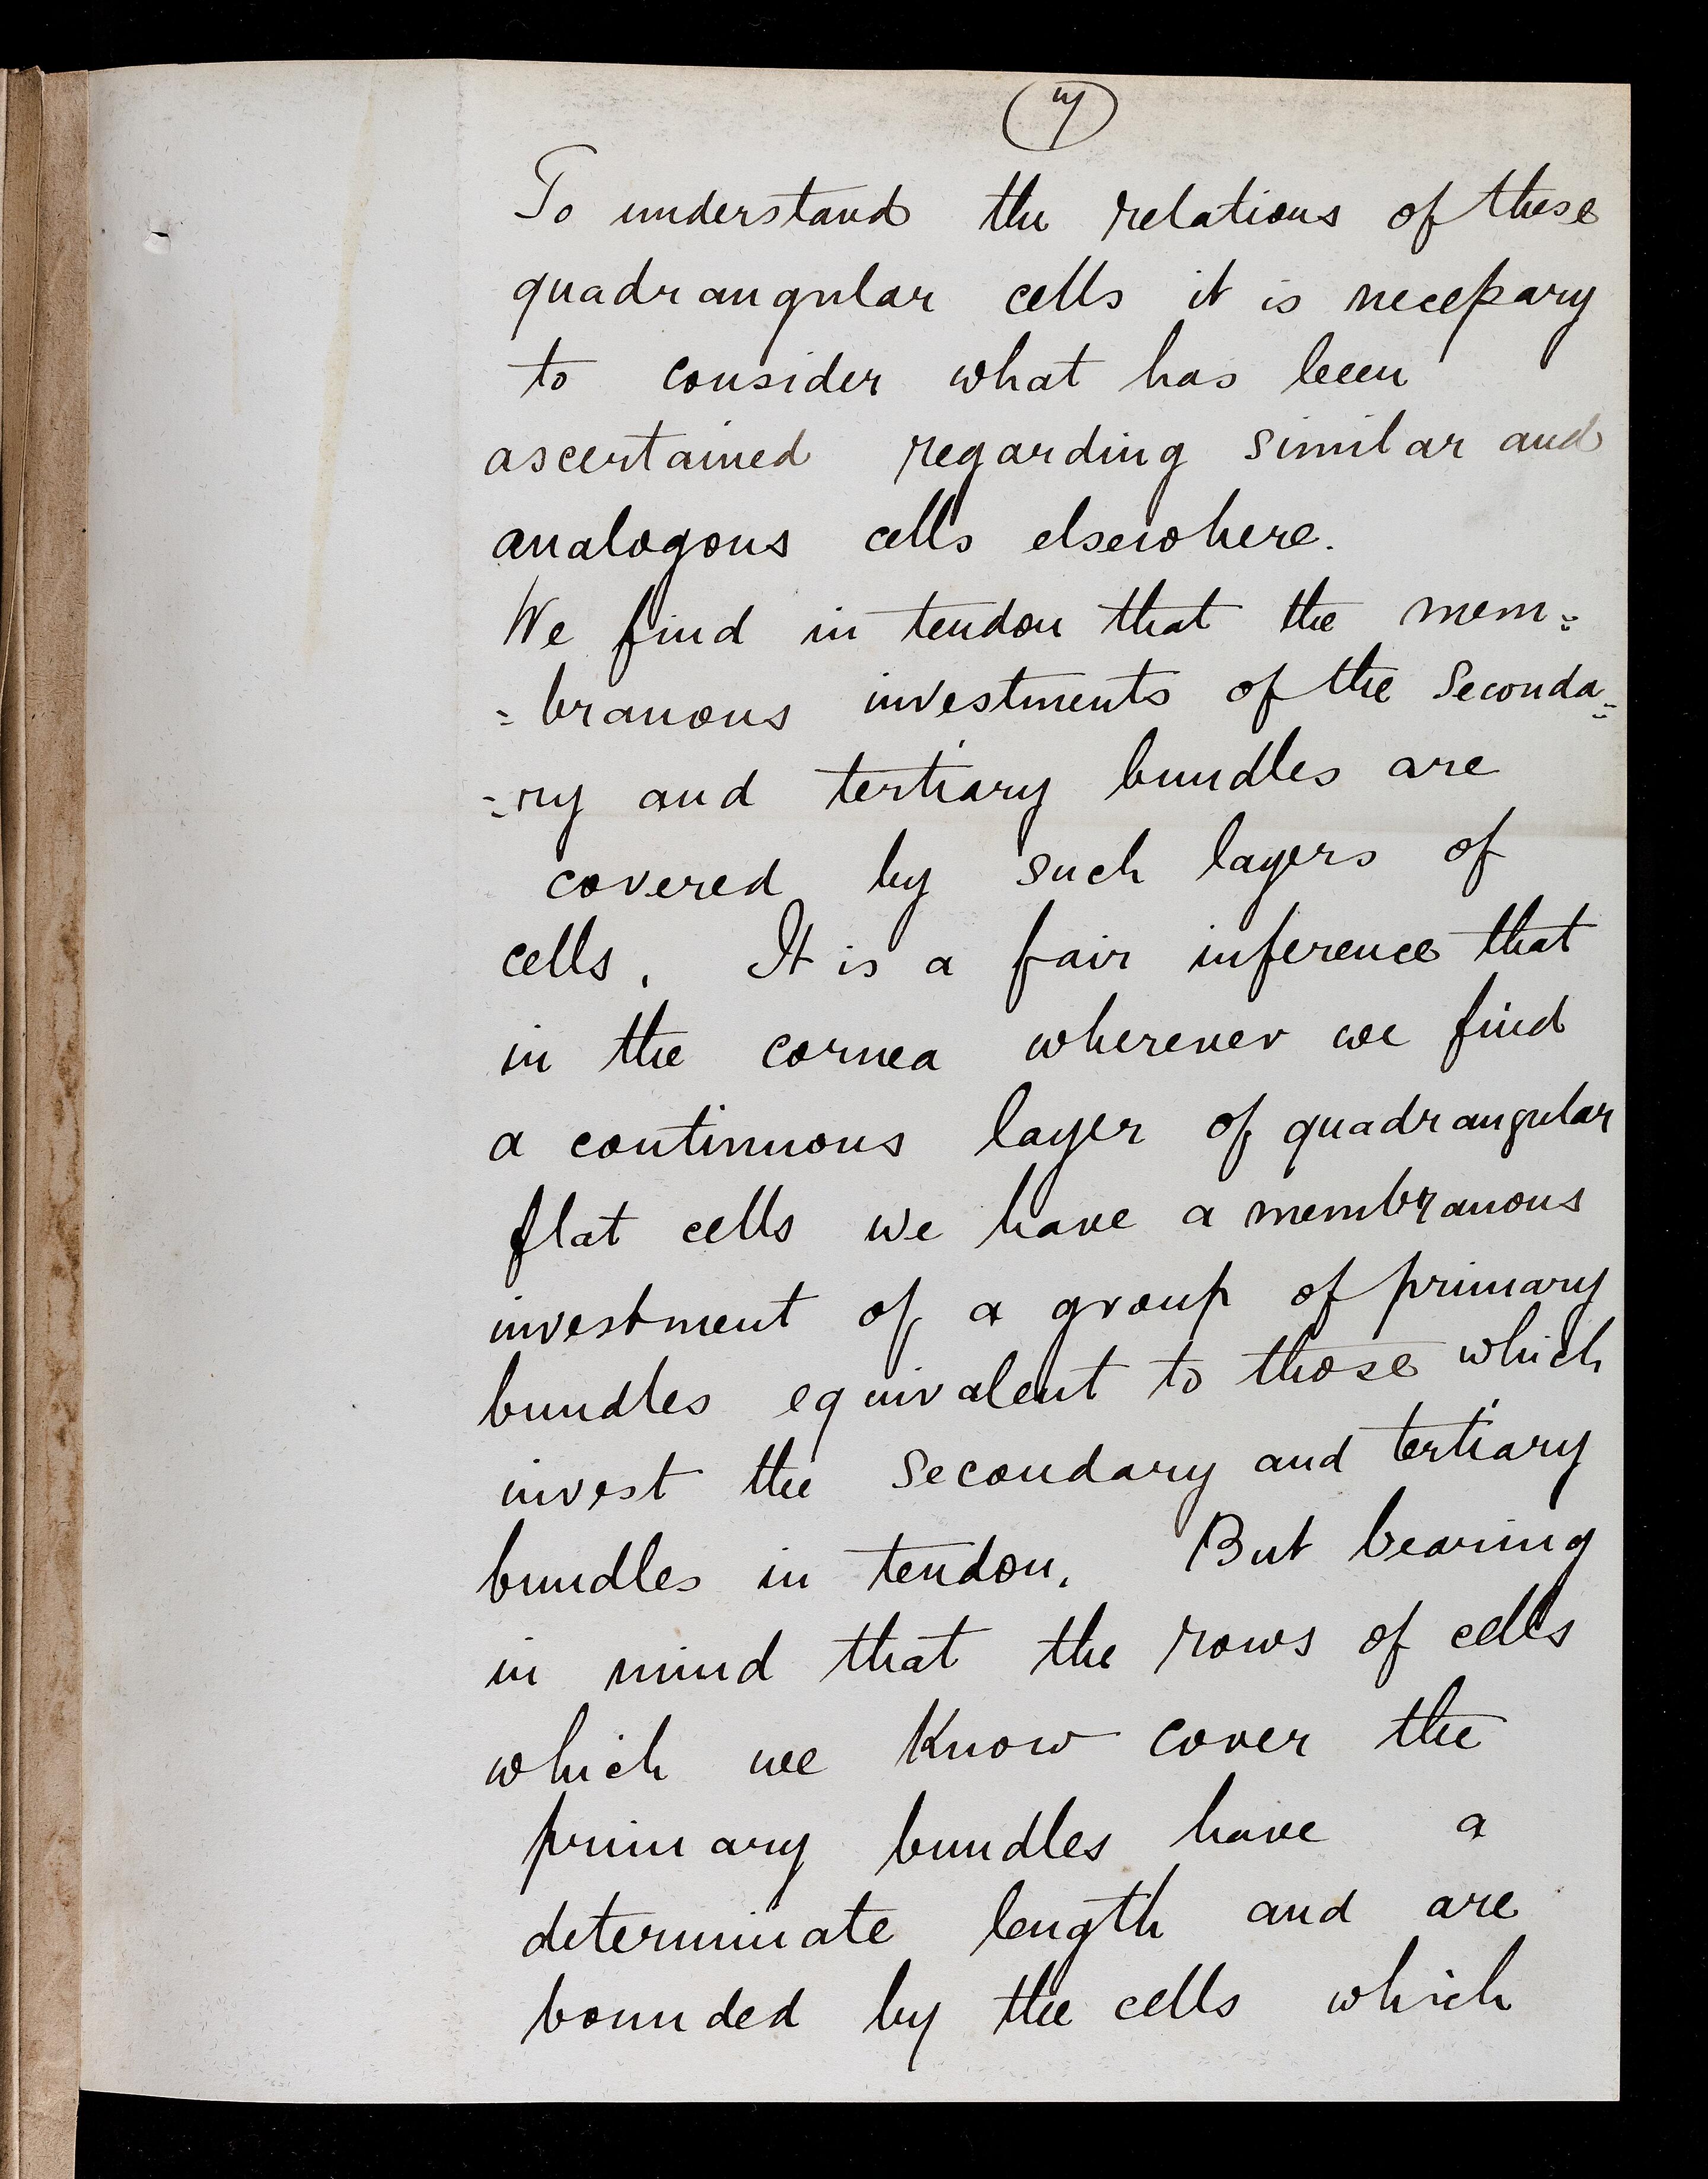 To understand the relations of these
quadrangular cells it is necessary
to consider what has been
ascertained regarding similar and
analogous cells elsewhere.
We find in tendon that the mem=
=branous investments of the Seconda=
=ry and tertiary bundles are
covered by such layers of
cells. It is a fair inference that
in the cornea wherever we find
a continuous layer of quadrangular
flat cells we have a membranous
investment of a group of primary
bundles equivalent to those which
invest the Secondary and tertiary
bundles in tendon. But bearing
in mind that the rows of cells
which we Know cover the
primary bundles have a
determinate length and are
bounded by the cells which